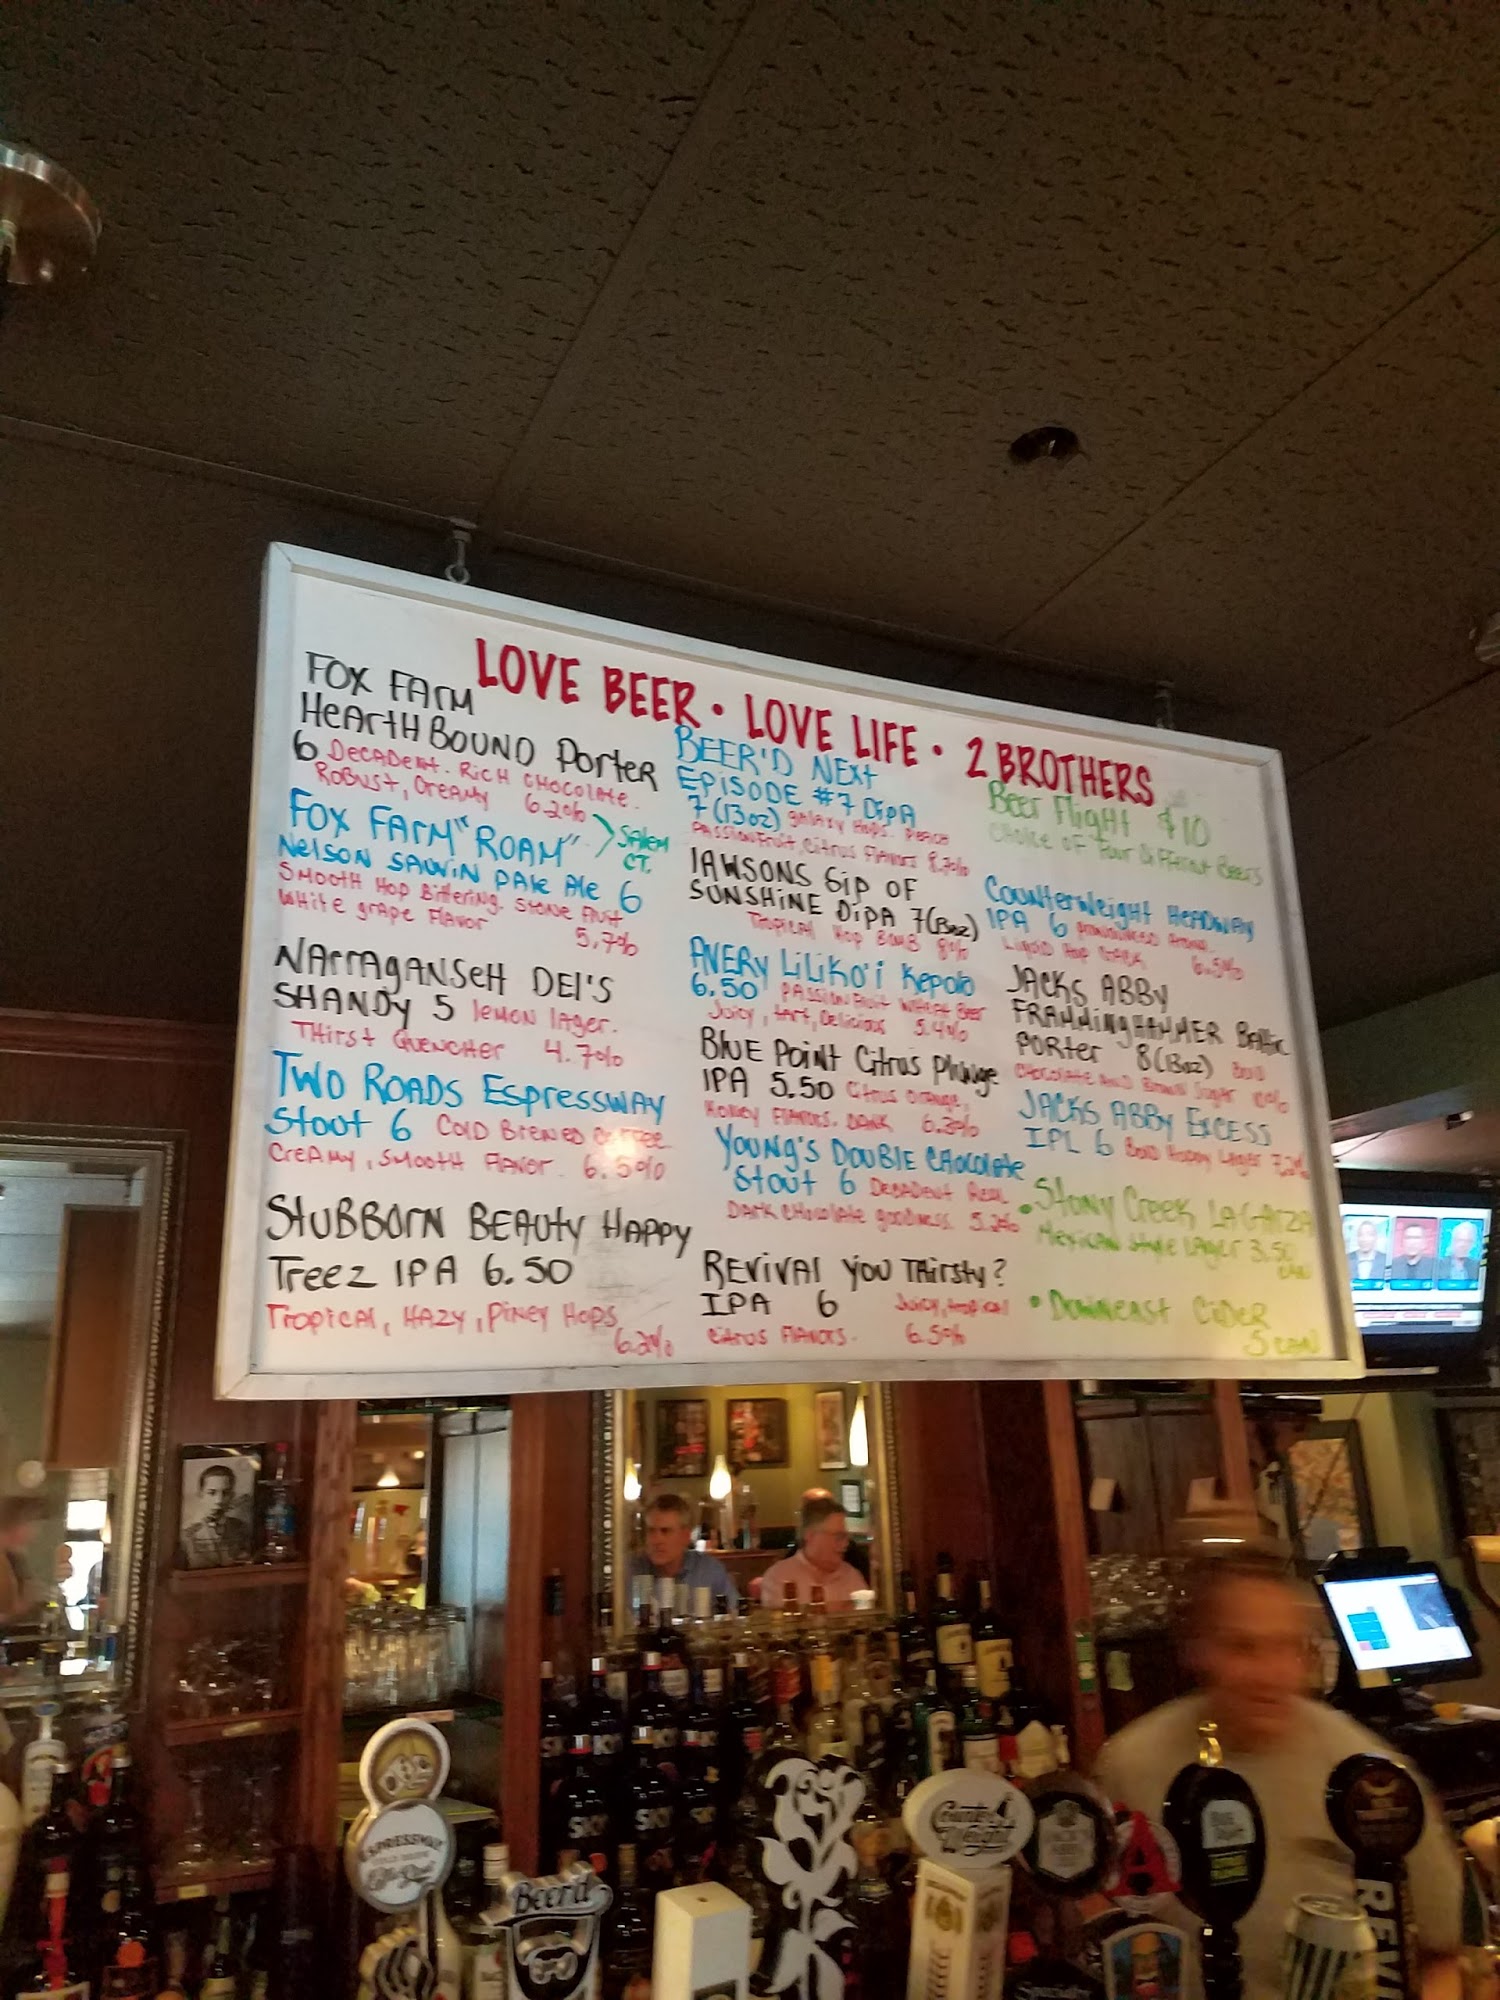 LOVE BEER • LOVE LIFE • 2 BROTHERS
FOX FARM
HEARTH BOUND PORTER
6 DECADENT. RICH CHOCOLATE.
ROBUST, CREAMY 6.2%
FOX FARM "ROAM"
NELSON SAUVIN PALE ALE 6
SALEM
CT.
SMOOTH HOP BITTERING. STONE FRUIT
WHITE GRAPE FLAVOR 5.7%
NARRAGANSETT DEL'S
SHANDY 5 LEMON LAGER.
THIRST QUENCHER 4.7%
TWO ROADS ESPRESSWAY
STOUT 6 COLD BREWED COFFEE
CREAMY, SMOOTH FLAVOR. 6.5%
STUBBORN BEAUTY HAPPY
TREEZ IPA 6.50
TROPICAL, HAZY, PINEY HOPS
6.2%
BEER'D NEXT
EPISODE #7 DIPA
7 (13oz) GALAXY HOPS. PEACH
PASSIONFRUIT, CITRUS FLAVORS 8.7%
LAWSONS SIP OF
SUNSHINE DIPA 7 (13oz)
TROPICAL HOP BOMB 8%
AVERY LILIKO'I KEPOLO
6.50 PASSIONFRUIT WHEAT BEER
JUICY, TART, DELICIOUS 5.4%
BLUE POINT CITRUS PLUNGE
IPA 5.50 CITRUS ORANGE,
HONEY FLAVORS. DANK 6.3%
YOUNG'S DOUBLE CHOCOLATE
STOUT 6 DECADENT REAL
DARK CHOCOLATE GOODNESS. 5.2%
REVIVAL YOU THIRSTY?
IPA 6 JUICY, TROPICAL
CITRUS FLAVORS. 6.5%
Beer Flight $10
CHOICE OF Four Different Beers
COUNTERWEIGHT HEADWAY
IPA 6 PRONOUNCED
LIQUID HOP 6.5%
JACKS ABBY
FRAMMINGHAMMER BALTIC
PORTER 8 (13oz) BOLD
CHOCOLATE AND BROWN SUGAR 10%
JACKS ABBY EXCESS
IPL 6 BOLD HOPPY LAGER 7.2%
• Stony Creek LAGARZA
MEXICAN STYLE LAGER 3.50
CAN
• DOWNEAST CIDER
5 CAN
SKYY
SKYY
Beer'd
Counter
Weight
ESPRESSWAY
REVI